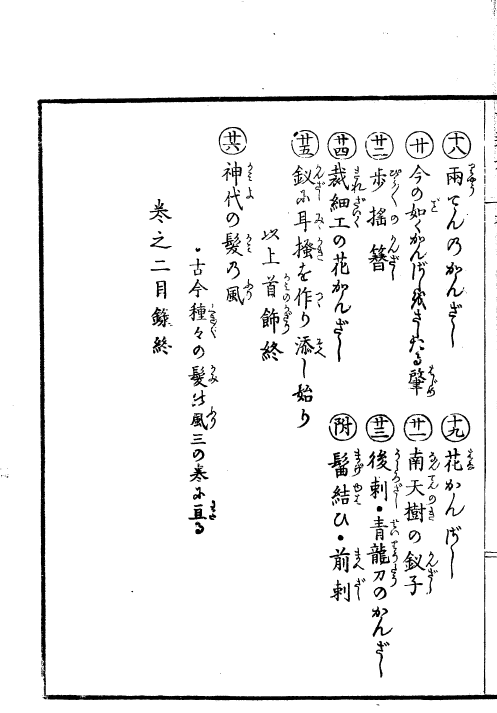 十八 両てんのかんざし
十九 花かんざし
廿 今の如くかんざしをさしたる肇
廿一 南天樹の釵子
廿二 歩揺簪
廿三 後刺・青龍刀のかんざし
廿四 裁細工の花かんざし
附 髷結ひ・前刺
廿五 釵に耳掻を作り添し始り
以上首飾終
廿六 神代の髪の風
・古今種々の髪の風三の巻に亘る
巻之二目録終